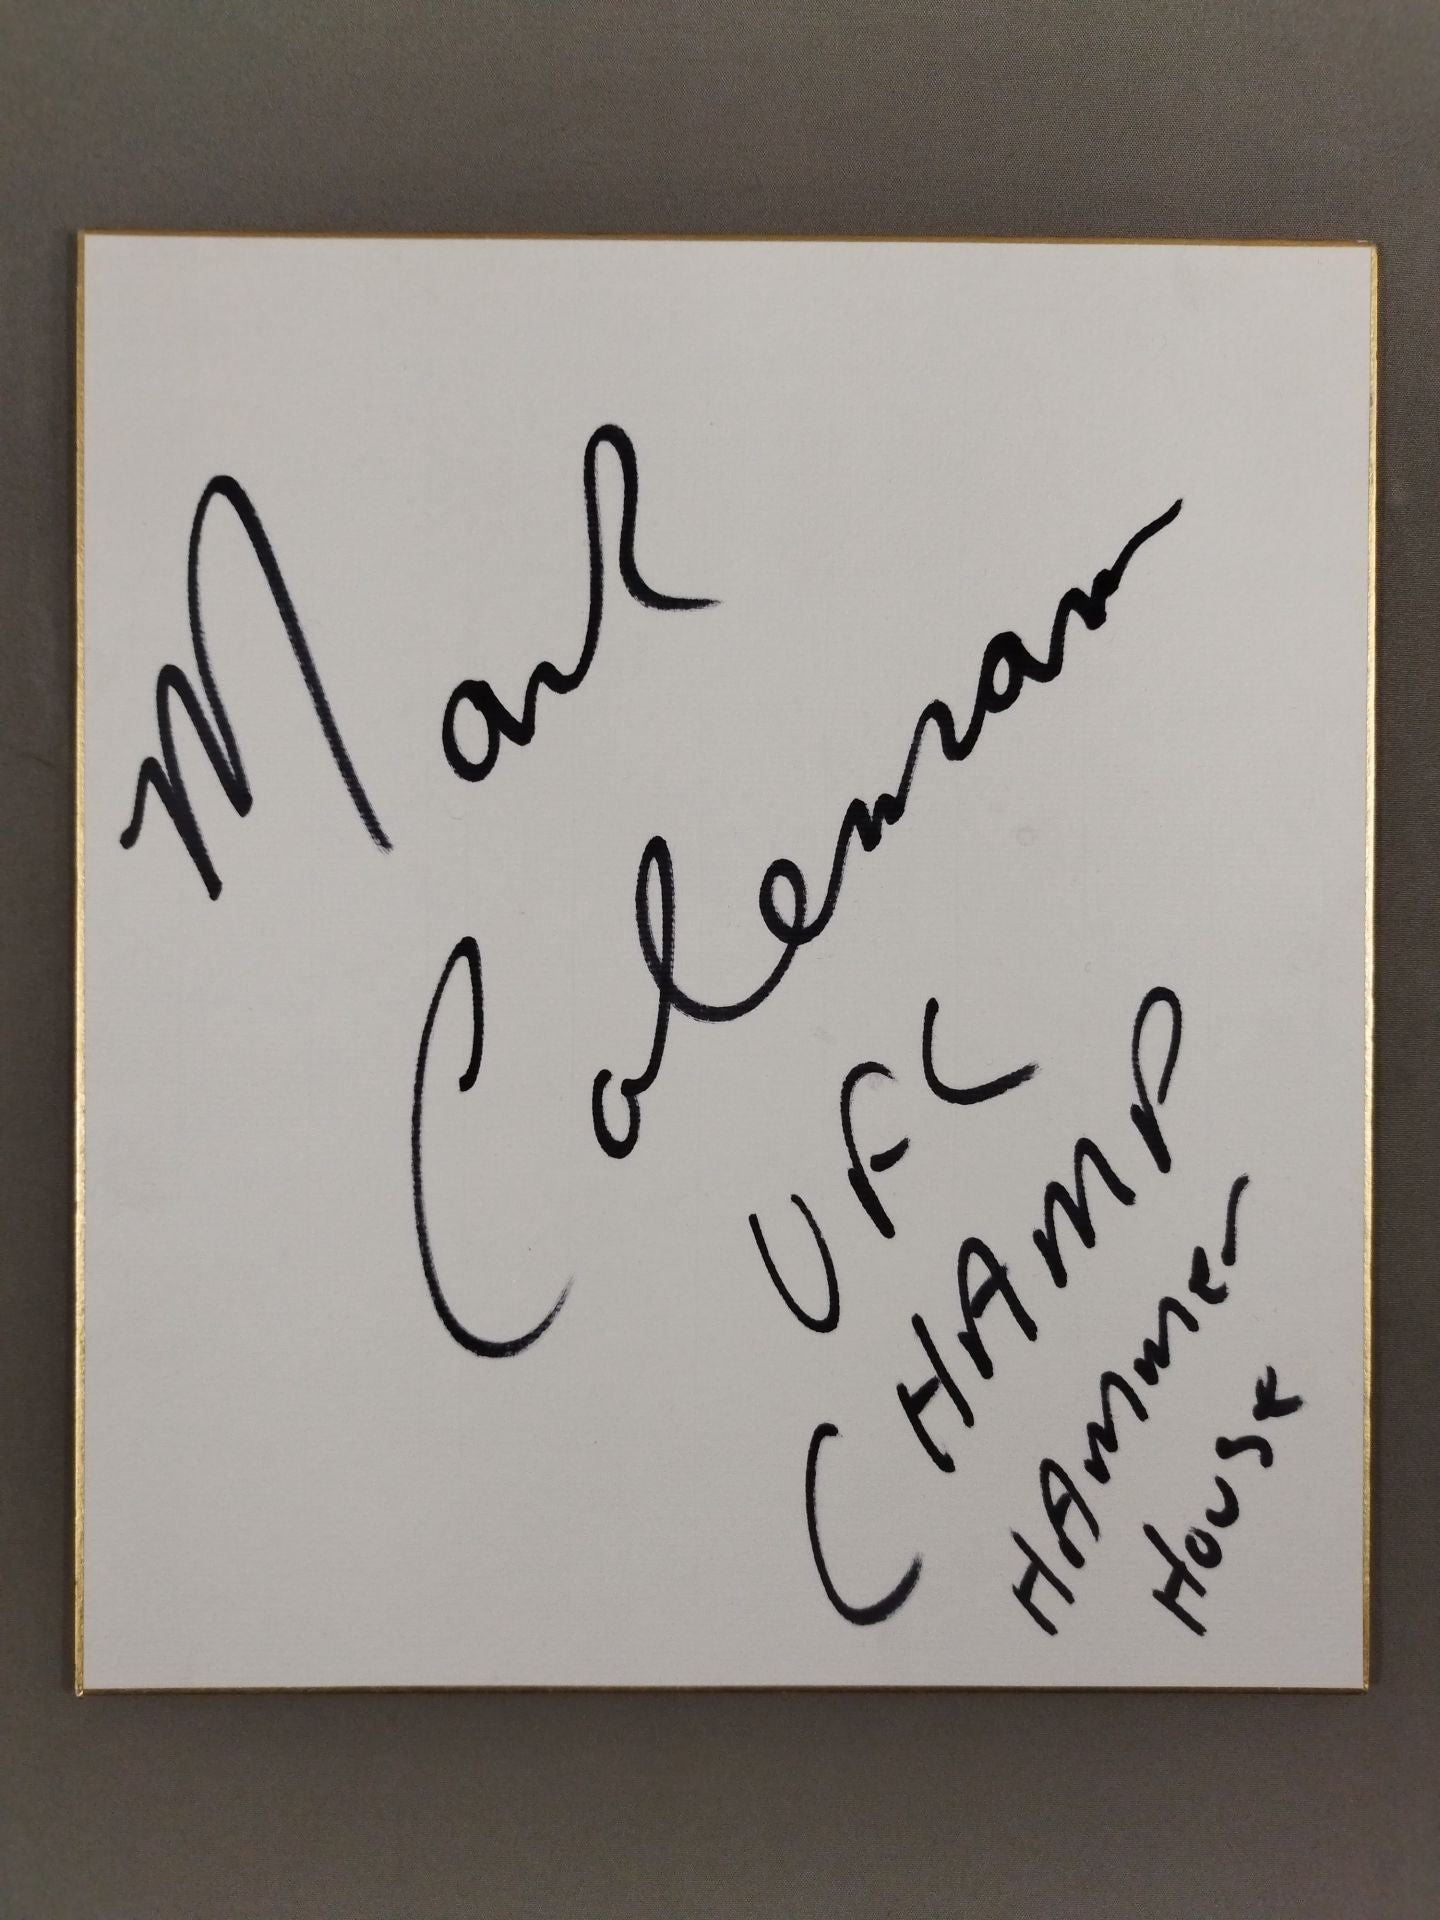 Mark
Coleman
UFC
CHAMP
HAMMER
HOUSE